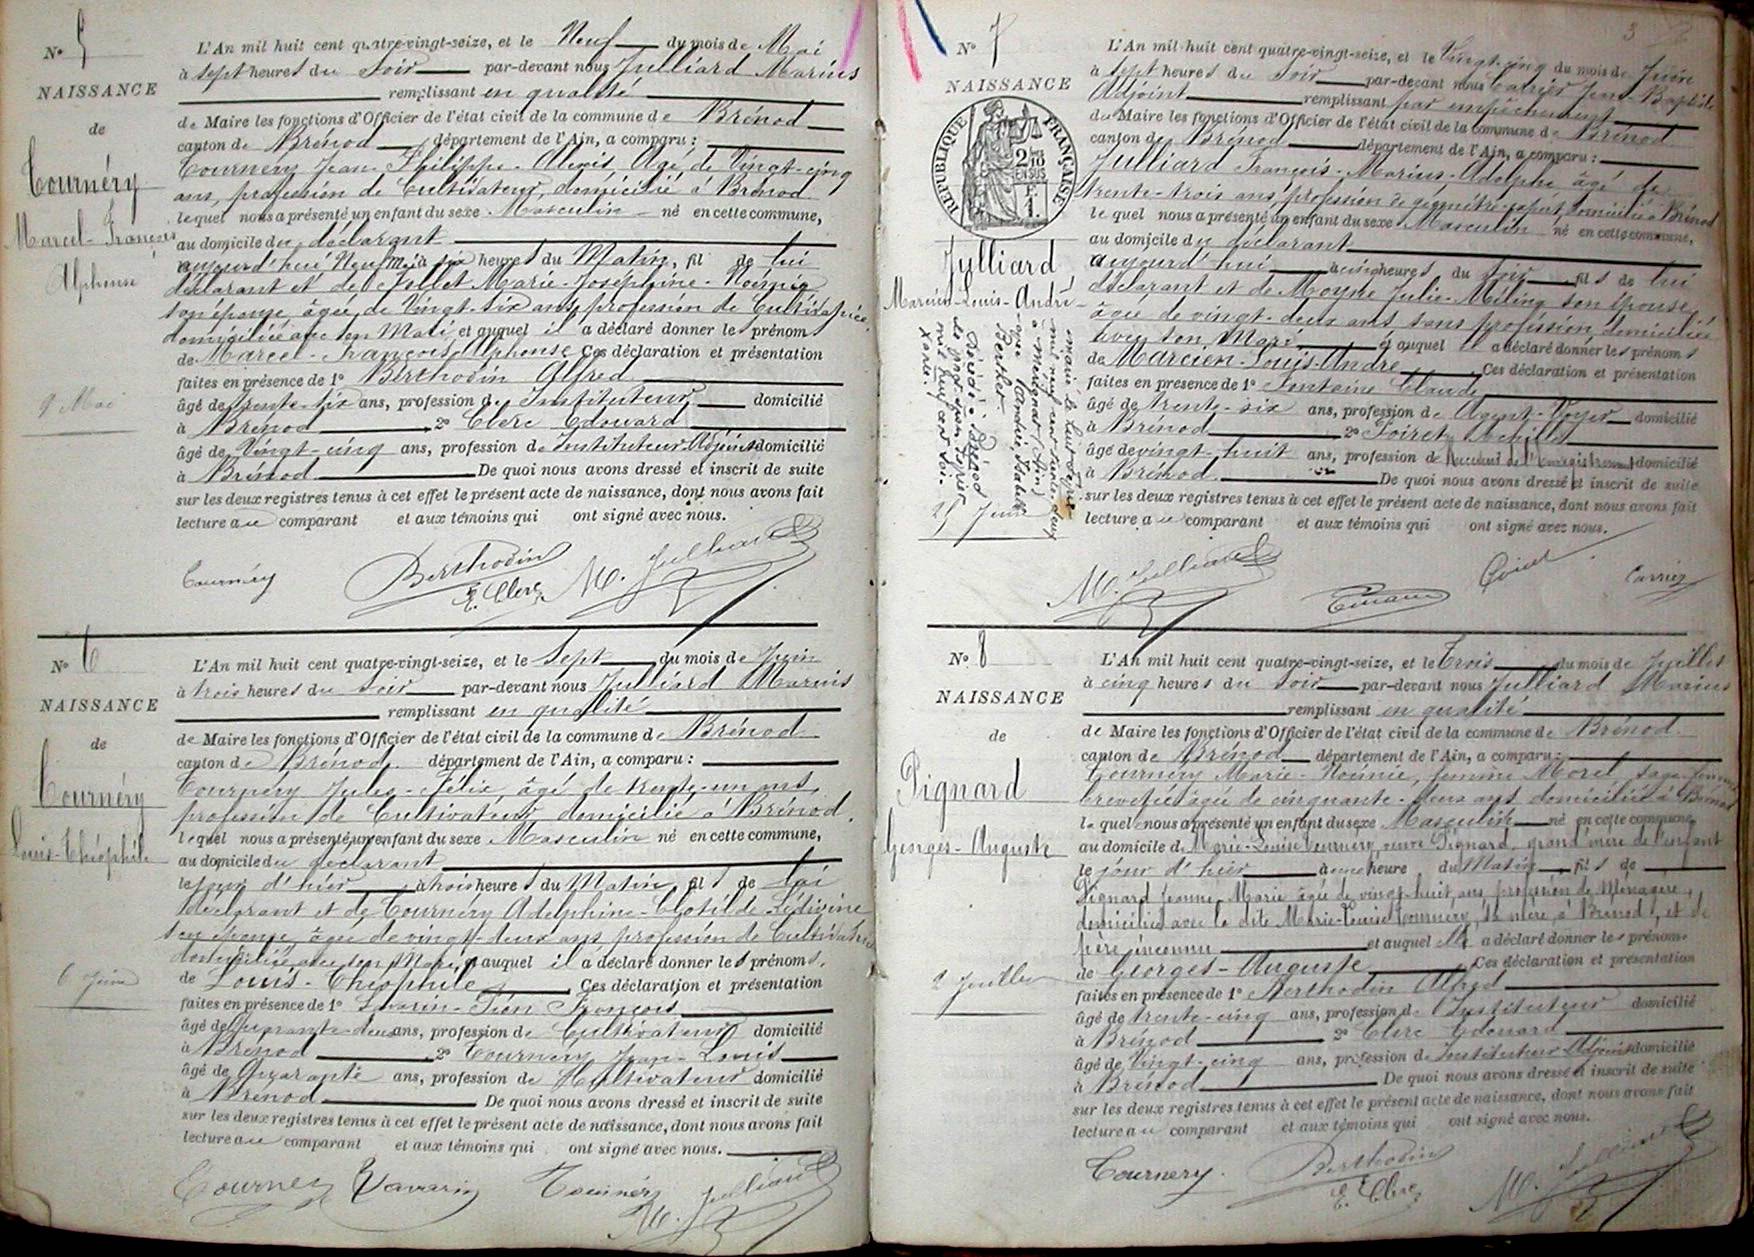 N° 5
NAISSANCE
de
Tournéry
Marcel-François
Alphonse
9 Mai
L'An mil huit cent quatre-vingt-seize, et le Neuf du mois de Mai
à sept heures du Soir par-devant nous Julliard Marius
remplissant en qualité
de Maire les fonctions d'Officier de l'état civil de la commune de Brénod
canton de Brénod département de l'Ain, a comparu :
Tournéry Jean-Philippe-Alexis Agé de Vingt-cinq
ans, profession de Cultivateur domicilié à Brénod
lequel nous a présenté un enfant du sexe Masculin né en cette commune,
au domicile du déclarant
aujourd'hui Neuf Mai à six heures du Matin, fil de lui
déclarant et de Jollet Marie-Joséphine-Noémie
son épouse âgée de Vingt-six ans profession de Cultivatrice,
domiciliée avec son Mari et auquel il a déclaré donner les prénoms
de Marcel-François Alphonse Ces déclaration et présentation
faites en présence de 1° Berthodin Alfred
âgé de trente-six ans, profession d' Instituteur domicilié
à Brénod 2° Clerc Edouard
âgé de Vingt-cinq ans, profession d'Instituteur-Adjoint domicilié
à Brénod De quoi nous avons dressé et inscrit de suite
sur les deux registres tenus à cet effet le présent acte de naissance, dont nous avons fait
lecture au comparant et aux témoins qui ont signé avec nous.
Tournéry Berthodin E. Clerc M. Julliard
N° 6
NAISSANCE
de
Tournéry
Louis-Théophile
6 Juin
L'An mil huit cent quatre-vingt-seize, et le Sept du mois de Juin
à trois heures du Soir par-devant nous Julliard Marius
remplissant en qualité
de Maire les fonctions d'Officier de l'état civil de la commune de Brénod
canton de Brénod département de l'Ain, a comparu :
Tournéry Jules-Félix âgé de trente-un ans
profession de Cultivateur domicilié à Brénod,
lequel nous a présenté un enfant du sexe Masculin né en cette commune,
au domicile du déclarant
le jour d'hier à trois heures du Matin fils de lui
déclarant et de Tournéry Adelphine-Clotilde-Ludivine
son épouse âgée de vingt-deux ans profession de Cultivatrice
domiciliée avec son Mari, et auquel il a déclaré donner les prénoms
de Louis-Théophile Ces déclaration et présentation
faites en présence de 1° Savarin-Jean François
âgé de Quarante-deux ans, profession de Cultivateur domicilié
à Brénod 2° Tournéry Jean-Louis
âgé de Quarante ans, profession de Cultivateur domicilié
à Brénod De quoi nous avons dressé et inscrit de suite
sur les deux registres tenus à cet effet le présent acte de naissance, dont nous avons fait
lecture au comparant et aux témoins qui ont signé avec nous.
Tournéry Savarin Tournéry M. Julliard
3
N° 7
NAISSANCE
RÉPUBLIQUE FRANÇAISE
2 10 EN SUS
F. 1.
Julliard
Marcien-Louis-André-
marié le huit
mil neuf cent vingt deux
à Meximieux (Ain)
avec
Berthet
Décédé à Brénod
le vingt deux
mil neuf cent
25 Juin
L'An mil huit cent quatre-vingt-seize, et le Vingt-cinq du mois de Juin
à Sept heures du Soir par-devant nous Carrier Jean-Baptiste
Adjoint remplissant par empêchement
du Maire les fonctions d'Officier de l'état civil de la commune de Brénod
canton de Brénod département de l'Ain, a comparu :
Julliard François-Marius-Adolphe âgé de
trente-trois ans, profession de géomètre expert domicilié à Brénod
lequel nous a présenté un enfant du sexe Masculin né en cette commune,
au domicile du déclarant
aujourd'hui à cinq heures du soir fils de lui
déclarant et de Moyne Julie-Méline son épouse
âgée de vingt-deux ans sans profession domiciliée
avec son Mari et auquel il a déclaré donner les prénoms
de Marcien-Louis-André Ces déclaration et présentation
faites en présence de 1° Fontaine Claude
âgé de trente-six ans, profession de Agent-Voyer domicilié
à Brénod 2° Poiret Achille
âgé de vingt-huit ans, profession de Receveur de l'Enregistrement domicilié
à Brénod De quoi nous avons dressé et inscrit de suite
sur les deux registres tenus à cet effet le présent acte de naissance, dont nous avons fait
lecture au comparant et aux témoins qui ont signé avec nous.
M. Julliard Poiret Carrier
N° 8
NAISSANCE
de
Pignard
Georges-Auguste
2 Juillet
L'An mil huit cent quatre-vingt-seize, et le Trois du mois de Juillet
à cinq heures du Soir par-devant nous Julliard Marius
remplissant en qualité
de Maire les fonctions d'Officier de l'état civil de la commune de Brénod
canton de Brénod département de l'Ain, a comparu :
Tournéry Marie-Noémie, femme Morel sage femme
brevetée âgée de cinquante-deux ans domiciliée à Brénod
laquelle nous a présenté un enfant du sexe Masculin né en cette commune,
au domicile de Marie-Louise Tournery, veuve Pignard, grand'mère de l'enfant
le jour d'hier à une heure du Matin fils de
Pignard Jeanne-Marie âgée de vingt-huit ans, profession de Ménagère,
domiciliée avec la dite Marie-Louise Tournery, sa mère, à Brénod, et de
père inconnu et auquel elle a déclaré donner les prénoms
de Georges-Auguste Ces déclaration et présentation
faites en présence de 1° Berthodin Alfred
âgé de trente-cinq ans, profession d'Instituteur domicilié
à Brénod 2° Clerc Edouard
âgé de Vingt-cinq ans, profession d'Instituteur Adjoint domicilié
à Brénod De quoi nous avons dressé et inscrit de suite
sur les deux registres tenus à cet effet le présent acte de naissance, dont nous avons fait
lecture au comparant et aux témoins qui ont signé avec nous.
Tournery. Berthodin E. Clerc M. Julliard